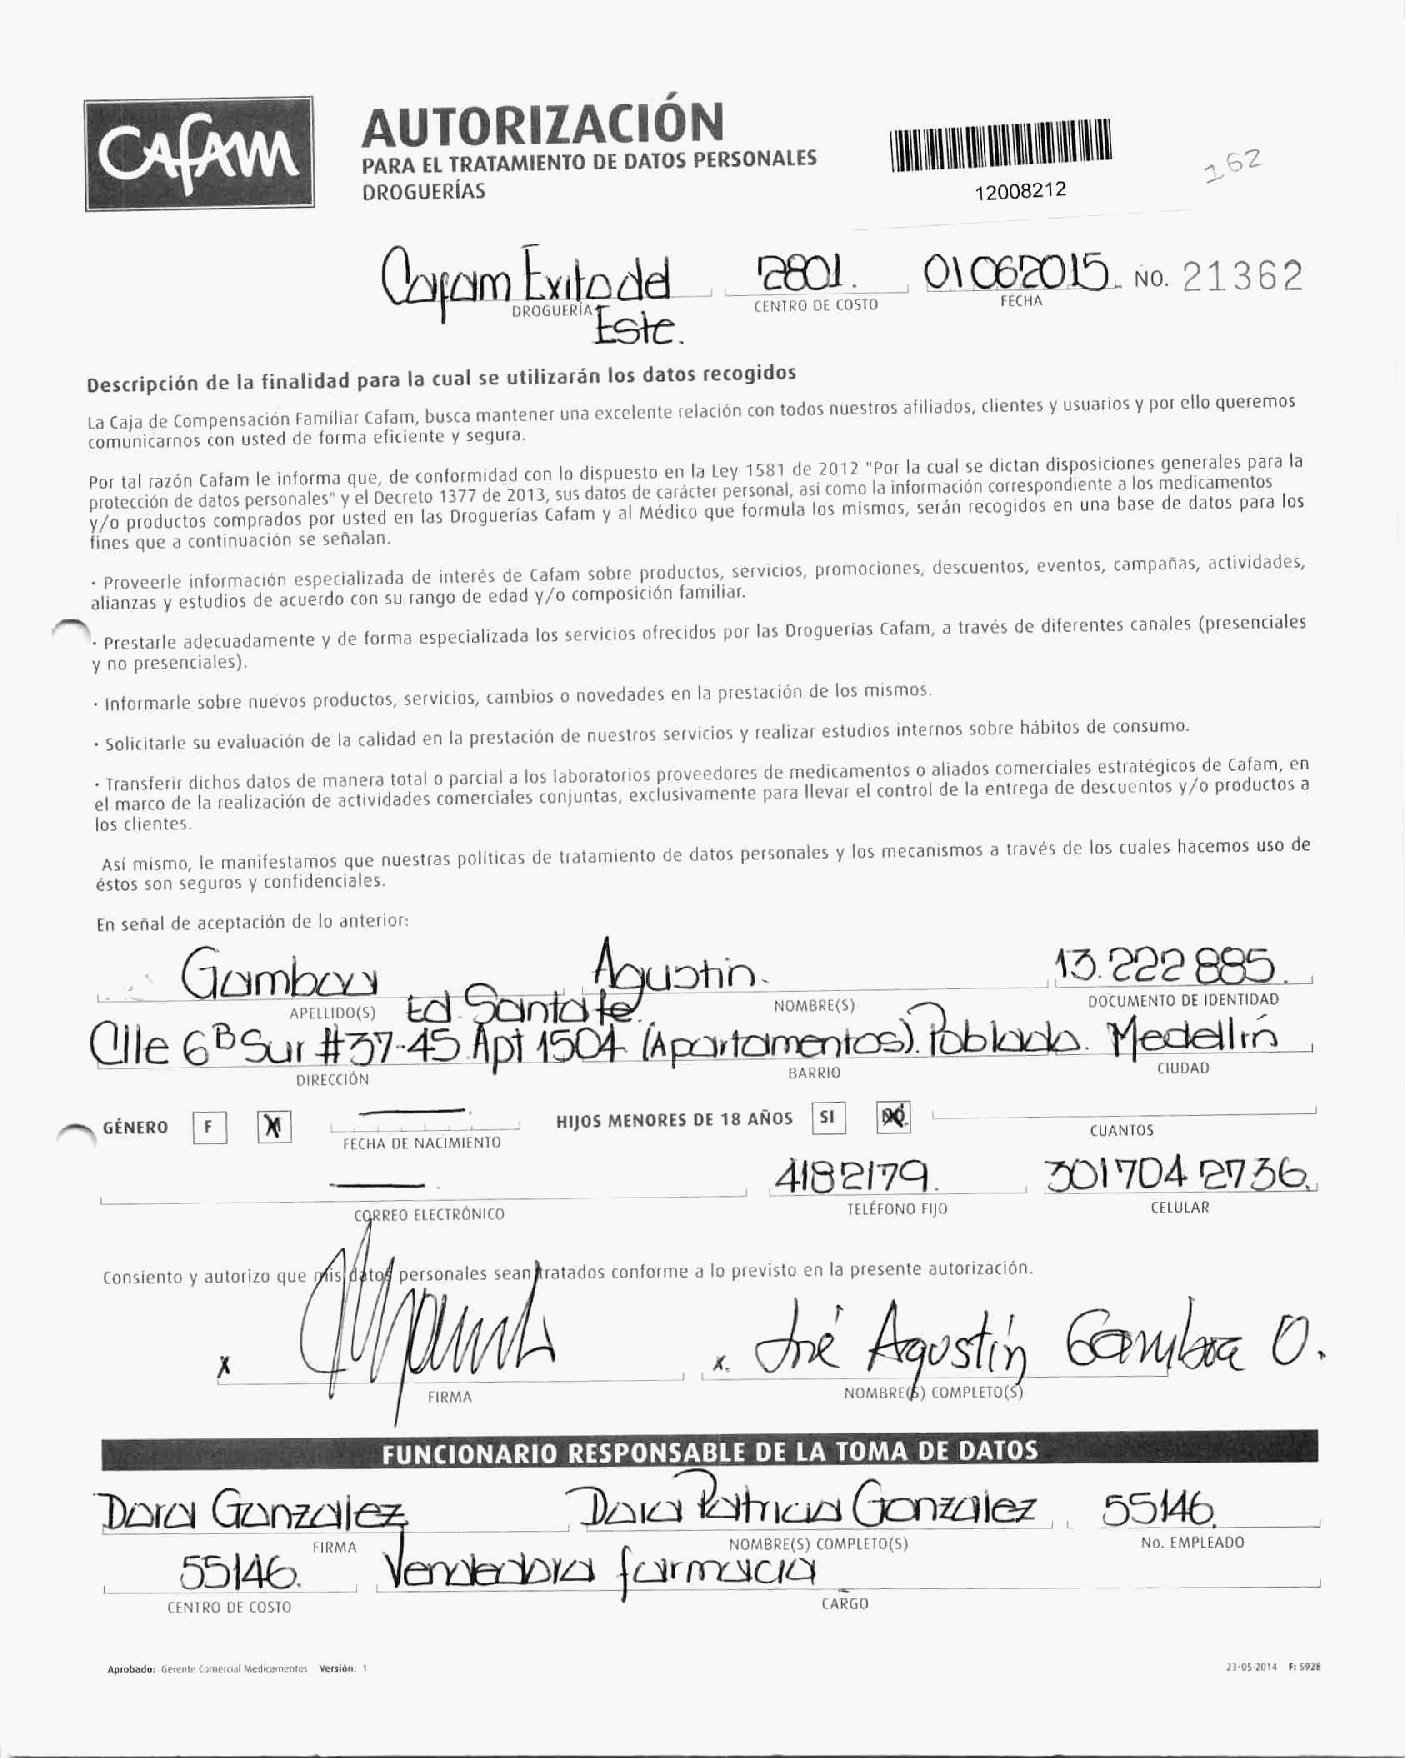 CAFAM
AUTORIZACIÓN
PARA EL TRATAMIENTO DE DATOS PERSONALES
DROGUERÍAS
12008212
162
Cafam Exito del Este. 2801. 01062015. No. 21362
DROGUERÍA CENTRO DE COSTO FECHA
Descripción de la finalidad para la cual se utilizarán los datos recogidos
La Caja de Compensación Familiar Cafam, busca mantener una excelente relación con todos nuestros afiliados, clientes y usuarios y por ello queremos
comunicarnos con usted de forma eficiente y segura.
Por tal razón Cafam le informa que, de conformidad con lo dispuesto en la Ley 1581 de 2012 "Por la cual se dictan disposiciones generales para la
protección de datos personales" y el Decreto 1377 de 2013, sus datos de carácter personal, así como la información correspondiente a los medicamentos
y/o productos comprados por usted en las Droguerías Cafam y al Médico que formula los mismos, serán recogidos en una base de datos para los
fines que a continuación se señalan.
· Proveerle información especializada de interés de Cafam sobre productos, servicios, promociones, descuentos, eventos, campañas, actividades,
alianzas y estudios de acuerdo con su rango de edad y/o composición familiar.
· Prestarle adecuadamente y de forma especializada los servicios ofrecidos por las Droguerías Cafam, a través de diferentes canales (presenciales
y no presenciales).
· Informarle sobre nuevos productos, servicios, cambios o novedades en la prestación de los mismos.
· Solicitarle su evaluación de la calidad en la prestación de nuestros servicios y realizar estudios internos sobre hábitos de consumo.
· Transferir dichos datos de manera total o parcial a los laboratorios proveedores de medicamentos o aliados comerciales estratégicos de Cafam, en
el marco de la realización de actividades comerciales conjuntas, exclusivamente para llevar el control de la entrega de descuentos y/o productos a
los clientes.
Así mismo, le manifestamos que nuestras políticas de tratamiento de datos personales y los mecanismos a través de los cuales hacemos uso de
éstos son seguros y confidenciales.
En señal de aceptación de lo anterior:
Gamboa Agustin. 13.222885.
APELLIDO(S) NOMBRE(S) DOCUMENTO DE IDENTIDAD
Ed. Santafe.
Clle 6B Sur #37-45 Apt 1504 (Apartamentos). Poblado. Medellín
DIRECCIÓN BARRIO CIUDAD
GÉNERO F X FECHA DE NACIMIENTO HIJOS MENORES DE 18 AÑOS SI CUANTOS
4182179. 3017042736.
CORREO ELECTRÓNICO TELÉFONO FIJO CELULAR
Consiento y autorizo que mis datos personales sean tratados conforme a lo previsto en la presente autorización.
x x. José Agustín Gamboa O.
FIRMA NOMBRE(S) COMPLETO(S)
FUNCIONARIO RESPONSABLE DE LA TOMA DE DATOS
Dora Gonzalez Dora Patricia Gonzalez 55146.
FIRMA NOMBRE(S) COMPLETO(S) No. EMPLEADO
55146. Vendedora farmacia
CENTRO DE COSTO CARGO
Aprobado: Gerente Comercial Medicamentos Versión: 1 23-05-2014 F: 5928